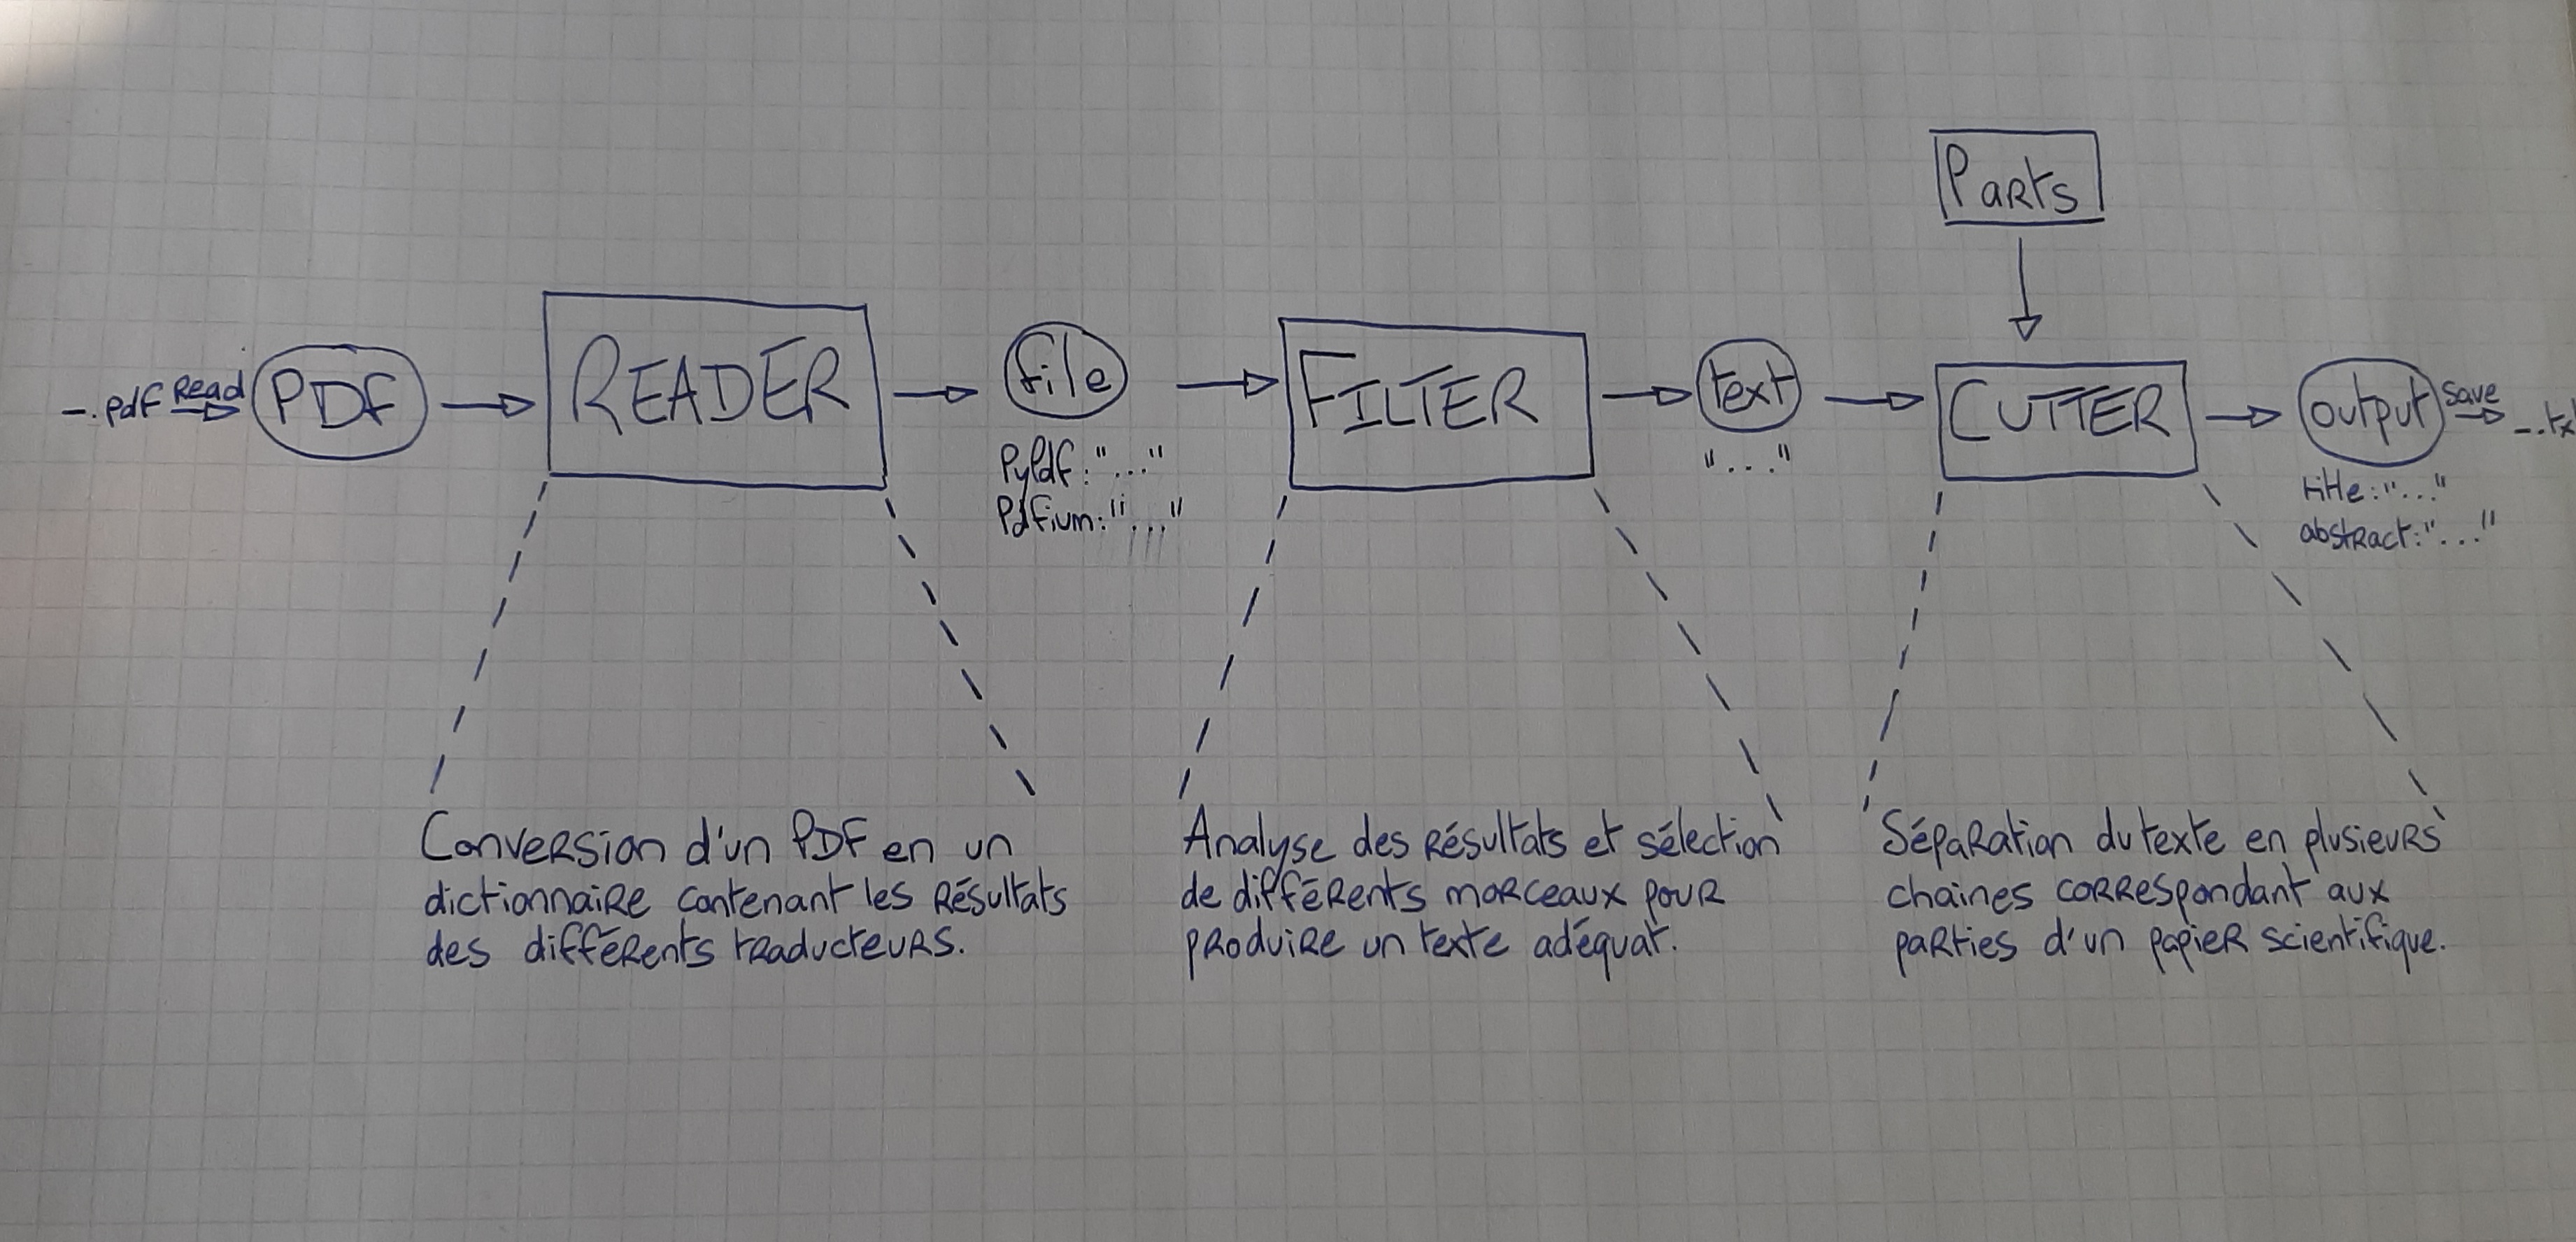 Parts
_.pdf Read PDF
READER
file
PyPdf: "..."
Pdfium: "..."
FILTER
text
"..."
CUTTER
output
save
_.tx
title: "..."
abstract: "..."
Conversion d'un PDF en un
dictionnaire contenant les résultats
des différents traducteurs.
Analyse des résultats et sélection
de différents morceaux pour
produire un texte adéquat.
Séparation du texte en plusieurs
chaines correspondant aux
parties d'un papier scientifique.